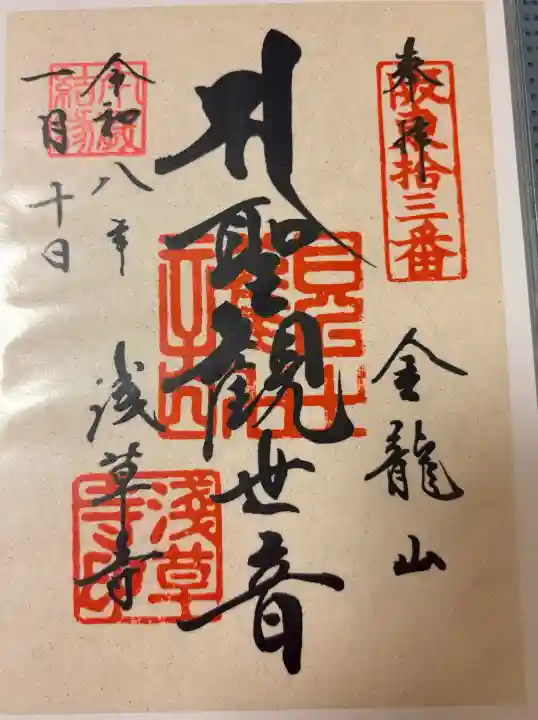 奉拝
阪東拾三番
金龍山
聖観世音
浅草寺
令和八年
一月十日
淺草寺印